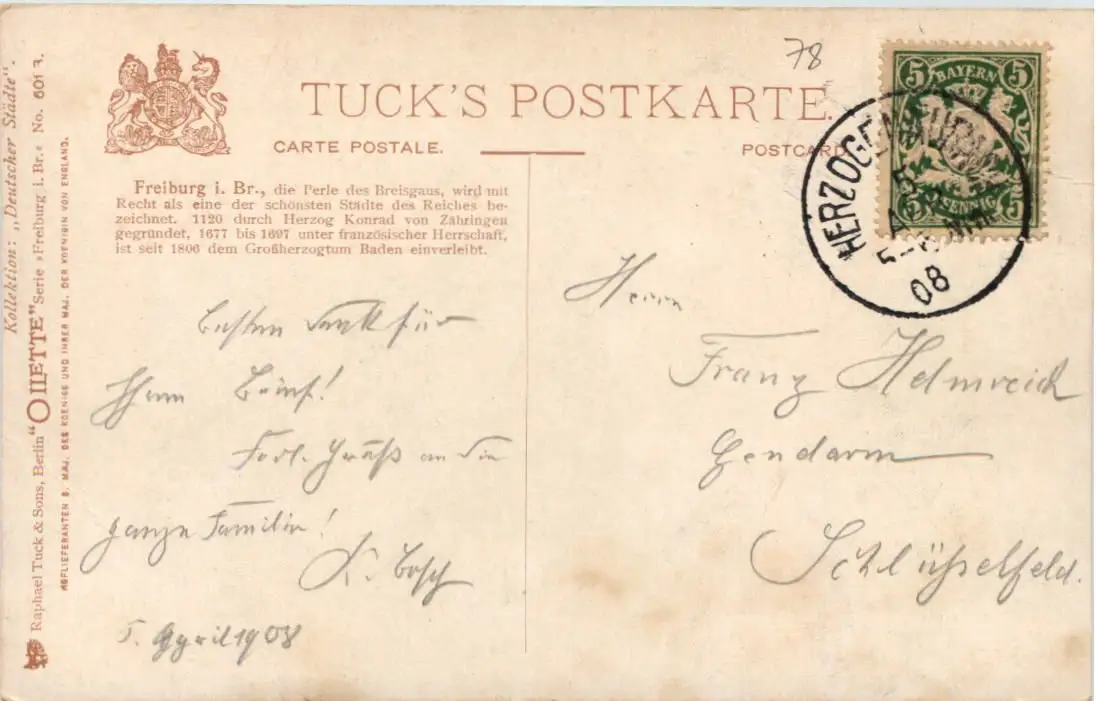 78
TUCK'S POSTKARTE.
CARTE POSTALE.
POSTCARD
BAYERN
5 5
PFENNIG
5 5
HERZOGENAURACH
5
NM
08
Freiburg i. Br., die Perle des Breisgaus, wird mit
Recht als eine der schönsten Städte des Reiches be-
zeichnet. 1120 durch Herzog Konrad von Zähringen
gegründet, 1677 bis 1697 unter französischer Herrschaft,
ist seit 1806 dem Großherzogtum Baden einverleibt.
Besten Dank für
Ihren Brief!
Frdl. Grüße an die
ganze Familie!
K. Bosch
5. April 1908
Herrn
Franz Helmreich
Gendarm
Schlüsselfeld.
Kollektion: „Deutscher Städte".
Raphael Tuck & Sons, Berlin "OILETTE" Serie »Freiburg i. Br.« No. 601
HOFLIEFERANTEN S. MAJ. DES KOENIGS UND IHRER MAJ. DER KOENIGIN VON ENGLAND.